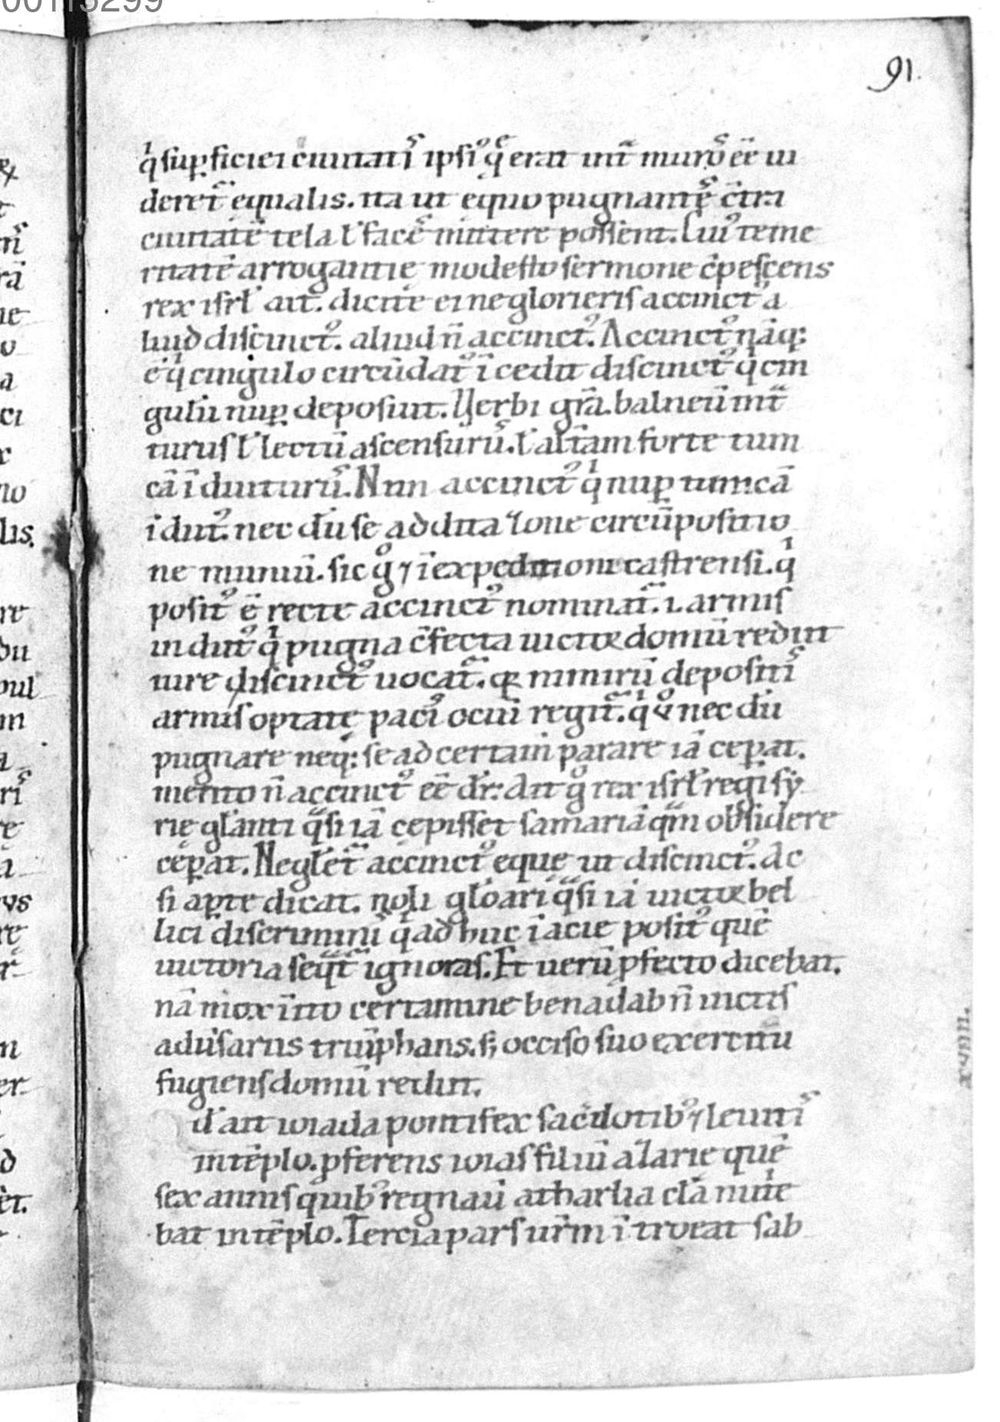 00113299
91
q̇ sup̱ficiei ciuitatĩˢ ipsiꝰ q̃ erat int̃ muroˢ eẽ ui
deret᷑ equalis. ita ut equo pugnanteˢ c̃tra
ciuitatẽ tela l̃ facẽˢ mittere possent. Cuiꝰ teme
ritatẽ arrogantię modesto sermone c̃pescens
rex isrł ait. dicite ei ne glorieris accinctꝰ a
liud discinctꝰ. aliud ñ accinctꝰ. Accinctꝰ nãq;
ẽ q̇ cingulo circũdatꝰ ĩcedit discinctꝰ q̇ cin
gulũ nup̱ deposuit. Uerbi gr̃a. balneũ int̃
turus l̃ lectũ ascensurũˢ. l̃ alt̃am forte tuni
cã ĩduiturũˢ. Non accinctꝰ q̇ nup̱ tunicã
ĩdutꝰ. necdũ se addita zone circũpositio
ne muniuit. sic g̊ ⁊ ĩ expeditione castrensi. q̇
positꝰ ẽ recte accinctꝰ nominat᷑. i. armis
indutꝰ q̇ pugna c̃fecta uictor domũ rediit
iure discinctꝰ uocat᷑. q̱ nimirũ depositiˢ
armis optatę paciˢ ocio regit᷑. q̇ ů necdũ
pugnare neq; se ad certam̃ parare iã cep̱at.
merito ñ accinctꝰ eẽ dr̃. Ait g̊ rex isrł regi sy
rię gl̃anti q̃si iã cepisset samariã q̃m obsidere
cep̱at. Ne glet᷑ accinctꝰ eque ut discinctꝰ. Ac
si ap̱te dicat. noli gloari q̃si iã uictor bel
lici discrimini q̇ adhuc ĩ acie positꝰ quẽ
uictoria seq̃t᷑ ignoras. Et uerũ p̱fecto dicebat.
nã mox ĩito certamine benadab ñ uictis
adũsariis triũphans. s; occiso suo exercitu
fugiens domũ rediit.
d̃ ait ioiada pontifex sac̃dotibꝰ ⁊ leuitiˢ
in tẽplo. p̱ferens ioias filiũ azarie quẽ
sex annis quibꝰ regnauit atharlia clã nutrie
bat in tẽplo. Tercia pars ur̃m ĩtroeat sab